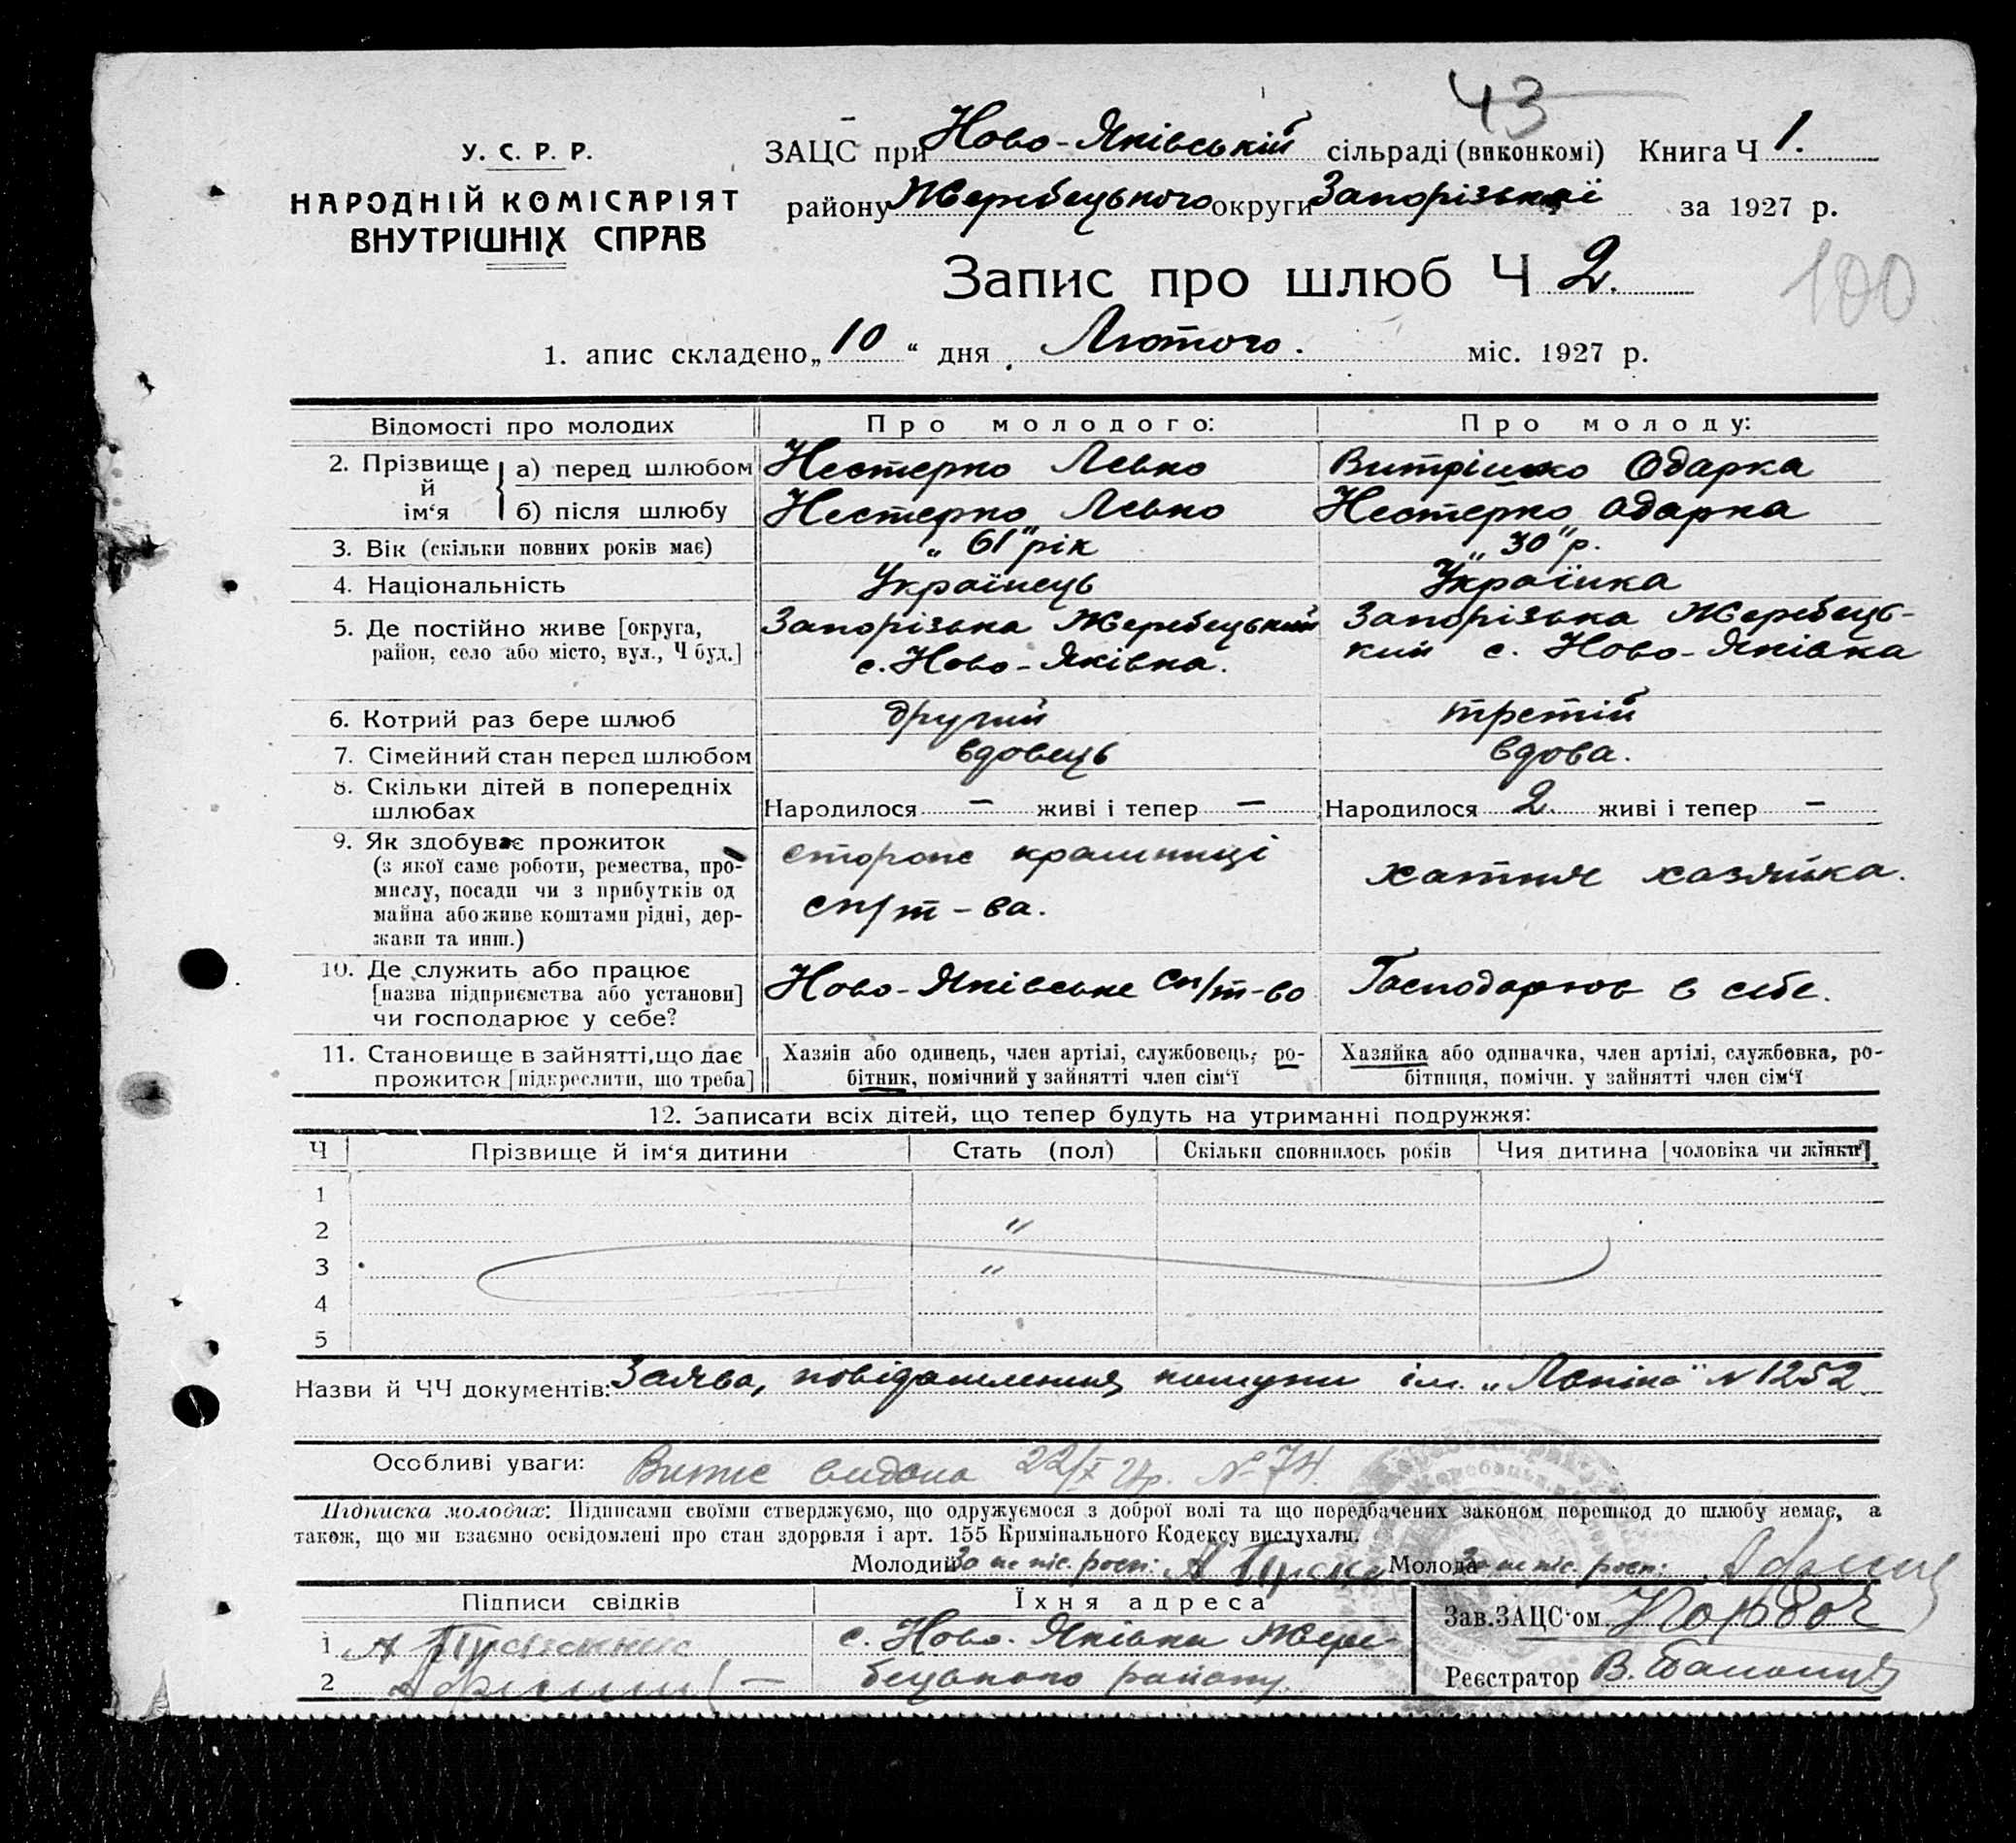 43
У. С. Р. Р.
НАРОДНІЙ КОМІСАРІЯТ
ВНУТРІШНІХ СПРАВ
ЗАЦС при Ново-Яківській сільраді (виконкомі) Книга Ч 1.
району Жеребецького округи Запорізької за 1927 р.
Запис про шлюб Ч 2.
100
1. апис складено „10“ дня Лютого. міс. 1927 р.
Відомості про молодих Про молодого: Про молоду:
2. Прізвище й ім‘я а) перед шлюбом Нестерко Левко Витрішко Одарка
б) після шлюбу Нестерко Левко Нестерко Одарка
3. Вік (скільки повних років має) „61“ рік „30“ р.
4. Національність Українець Українка
5. Де постійно живе [округа, Запорізька Жеребецький Запорізька Жеребець-
район, село або місто, вул., Ч буд.] с. Ново-Яківка. кий с. Ново-Яківка
6. Котрий раз бере шлюб другий третій
7. Сімейний стан перед шлюбом вдовець вдова.
8. Скільки дітей в попередніх
шлюбах Народилося — живі і тепер — Народилося 2 живі і тепер —
9. Як здобуває прожиток
(з якої саме роботи, ремества, про- сторож крамниці
мислу, посади чи з прибутків од хатня хазяйка.
майна або живе коштами рідні, дер- сп/т-ва.
жави та инш.)
10. Де служить або працює
[назва підприємства або установи] Ново-Яківське сп/т-во Господарює в себе.
чи господарює у себе?
11. Становище в зайнятті, що дає Хазяін або одинець, член артілі, службовець, ро- Хазяйка або одиначка, член артілі, службовка, ро-
прожиток [підкреслити, що треба] бітник, помічний у зайнятті член сім‘ї бітниця, помічн. у зайнятті член сім‘ї
12. Записати всіх дітей, що тепер будуть на утриманні подружжя:
Ч Прізвище й ім‘я дитини Стать (пол) Скільки сповнилось років Чия дитина [чоловіка чи жінки]
1
2 "
3 "
4
5
Назви й ЧЧ документів: Заява, повідомлення комуни ім. „Леніна“ N 1252
Особливі уваги: Витяг видано № 74.
Підписка молодих: Підписами своїми стверджуємо, що одружуємося з доброї волі та що передбачених законом перешкод до шлюбу немає, а
також, що ми взаємно освідомлені про стан здоровля і арт. 155 Кримінального Кодексу вислухали.
Молодий За не піс. розп: Молода За не піс. розп:
Підписи свідків Їхня адреса Зав. ЗАЦС‘ом
1 с. Ново-Яківка Жере-
2 бецького району. Реєстратор В.